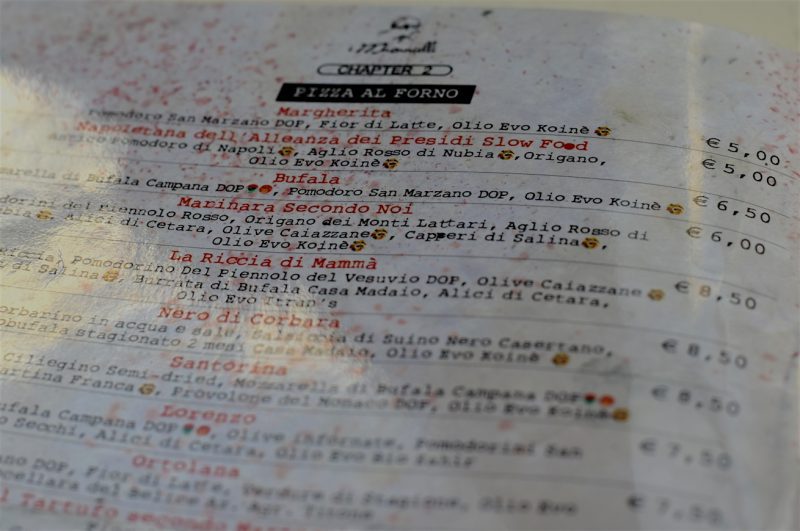 CHAPTER 2
PIZZA AL FORNO
Margherita
Pomodoro San Marzano DOP, Fior di Latte, Olio Evo Koinè € 5,00
Napoletana dell'Alleanza dei Presidi Slow Food
Antico Pomodoro di Napoli, Aglio Rosso di Nubia, Origano, € 5,00
Olio Evo Koinè
Bufala
di Bufala Campana DOP, Pomodoro San Marzano DOP, Olio Evo Koinè € 6,50
Marinara Secondo Noi
del Piennolo Rosso, Origano dei Monti Lattari, Aglio Rosso di € 6,00
Alici di Cetara, Olive Caiazzane, Capperi di Salina,
Olio Evo Koinè
La Riccia di Mammà
Pomodorino Del Piennolo del Vesuvio DOP, Olive Caiazzane € 8,50
di Salina, Burrata di Bufala Casa Madaio, Alici di Cetara,
Olio Evo Ttran's
Nero di Corbara
in acqua e sale, Salsiccia di Suino Nero Casertano, € 8,50
stagionato 2 mesi Casa Madaio, Olio Evo Koinè
Santorina
Ciliegino Semi-dried, Mozzarella di Bufala Campana DOP € 8,50
Martina Franca, Provolone del Monaco DOP, Olio Evo Koinè
Lorenzo
Bufala Campana DOP, Olive infornate, Pomodorini San € 7,50
Secchi, Alici di Cetara, Olio Evo
Ortolana
DOP, Fior di Latte, Verdure di Stagione, Olio Evo € 7,50
Tartufo secondo